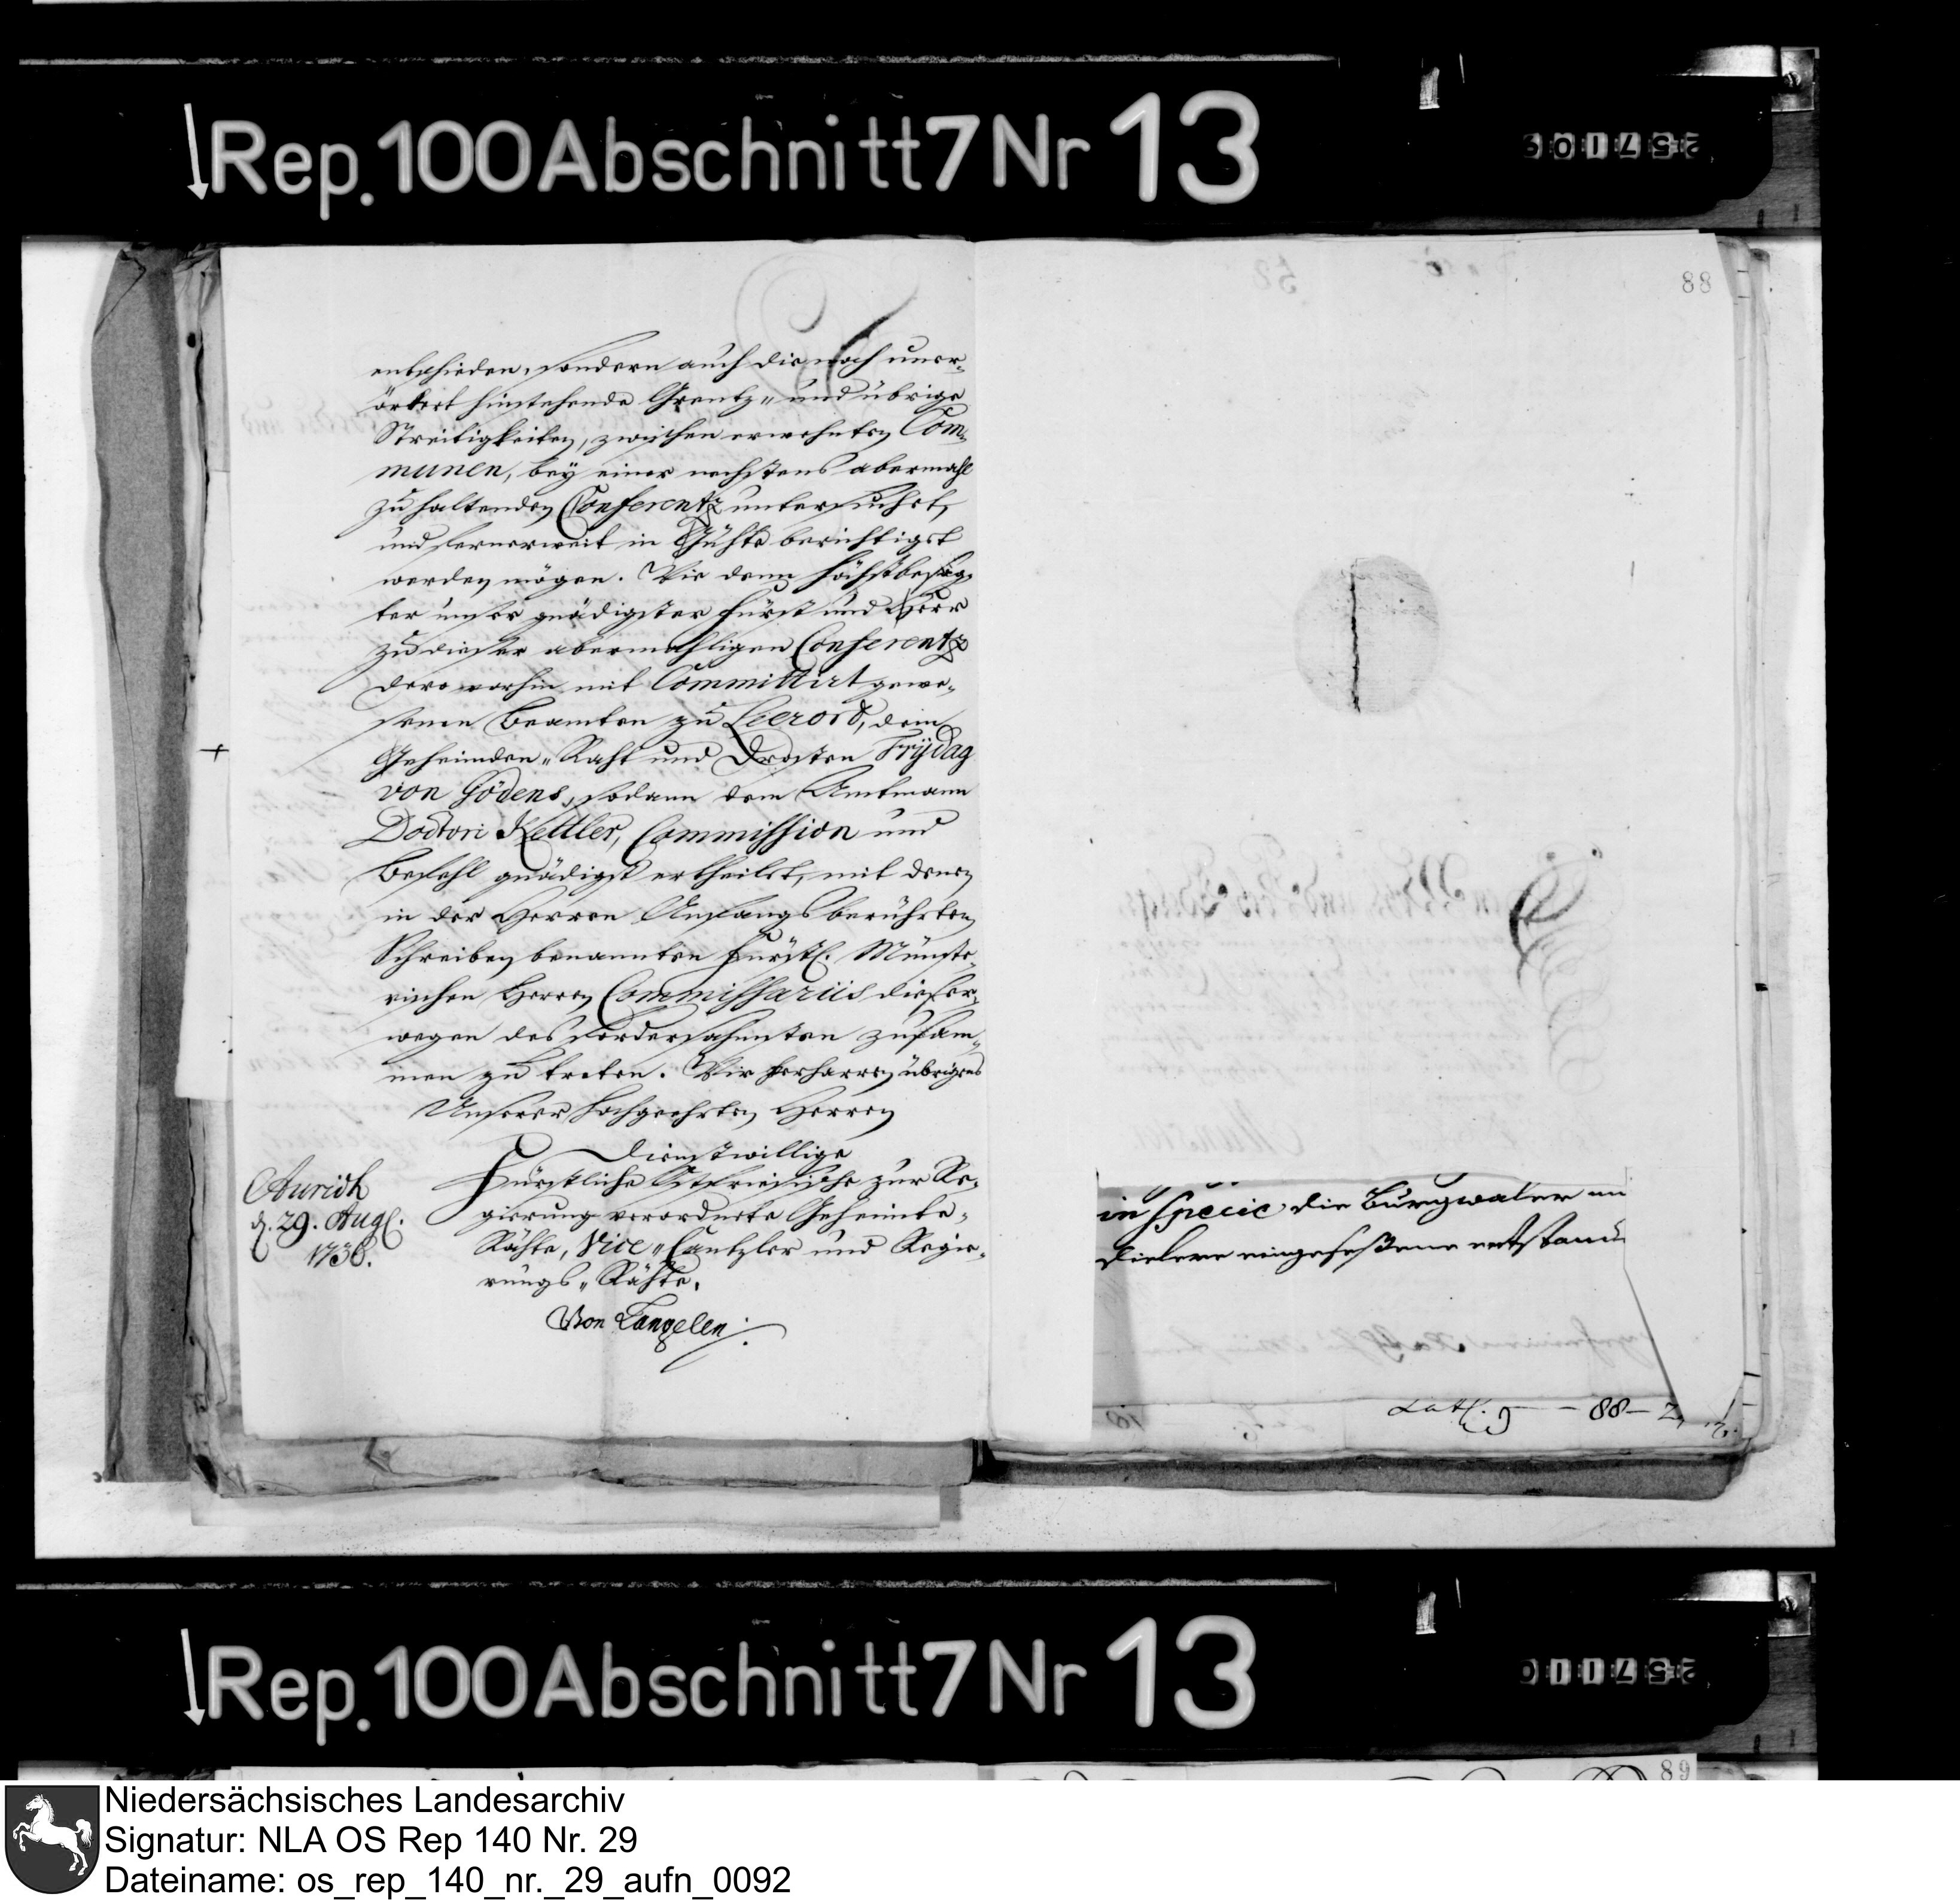 Rep. 100 Abschnitt 7 Nr 13
88
entschieden, sondern auch die noch uner-
örtert hinstehende Grentz- und übrige
Streitigkeiten, zwischen erwehnten Com-
munen, bey einer nechstens abermahl
zu haltenden Conferentz untersuchet,
und fernerweit in Gühte berichtiget
werden mögen. Wie denn höchstbesag-
ter unser gnädigster Fürst und Herr
zu dieser abermahligen Conferentz
dero vorhin mit Committirt gewe-
senen Beamten zu Leerord, dem
Geheimden-Raht und Drosten Frÿdag
von Gödens, sodann dem Amtmann
Doctori Kettler, Commission und
Befehl gnädigst ertheilet, mit denen
in der Herren Anfangs berührten
Schreiben benannten Fürstl. Münste-
rischen Herren Commissariis dieser-
wegen des fordersahmsten zusam-
men zu treten. Wir verharren übrigens
Unserer hochgeehrten Herren
Dienstwillige
Fürstliche Ostfriesische zur Re-
gierung verordnete Geheimte-
Rähte, Vice-Cantzler und Regie-
rungs-Rähte.
Von Langelen
Aurich
d. 29. Aug.
1738.
in specie die Burgwaler un
Dielere eingeseßene entstand
88
Rep. 100 Abschnitt 7 Nr 13
89
Niedersächsisches Landesarchiv
Signatur: NLA OS Rep 140 Nr. 29
Dateiname: os_rep_140_nr._29_aufn_0092